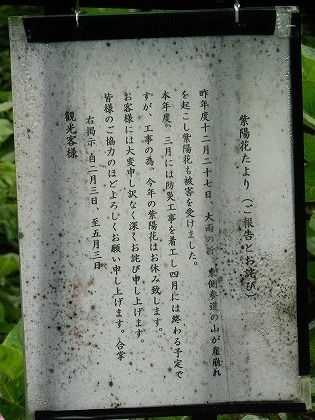 紫陽花たより（ご報告とお詫び）
昨年度十二月二十七日　大雨の折、東側参道の山が崖崩れ
を起こし紫陽花も被害を受けました。
本年度、三月には防災工事を着工し四月には終わる予定で
すが、工事の為、今年の紫陽花はお休み致します。
お客様には大変申し訳なく深くお詫び申し上げます。
皆様のご協力のほど よろしくお願い申し上げます。合掌
右掲示 自二月三日　至五月三日
観光客様